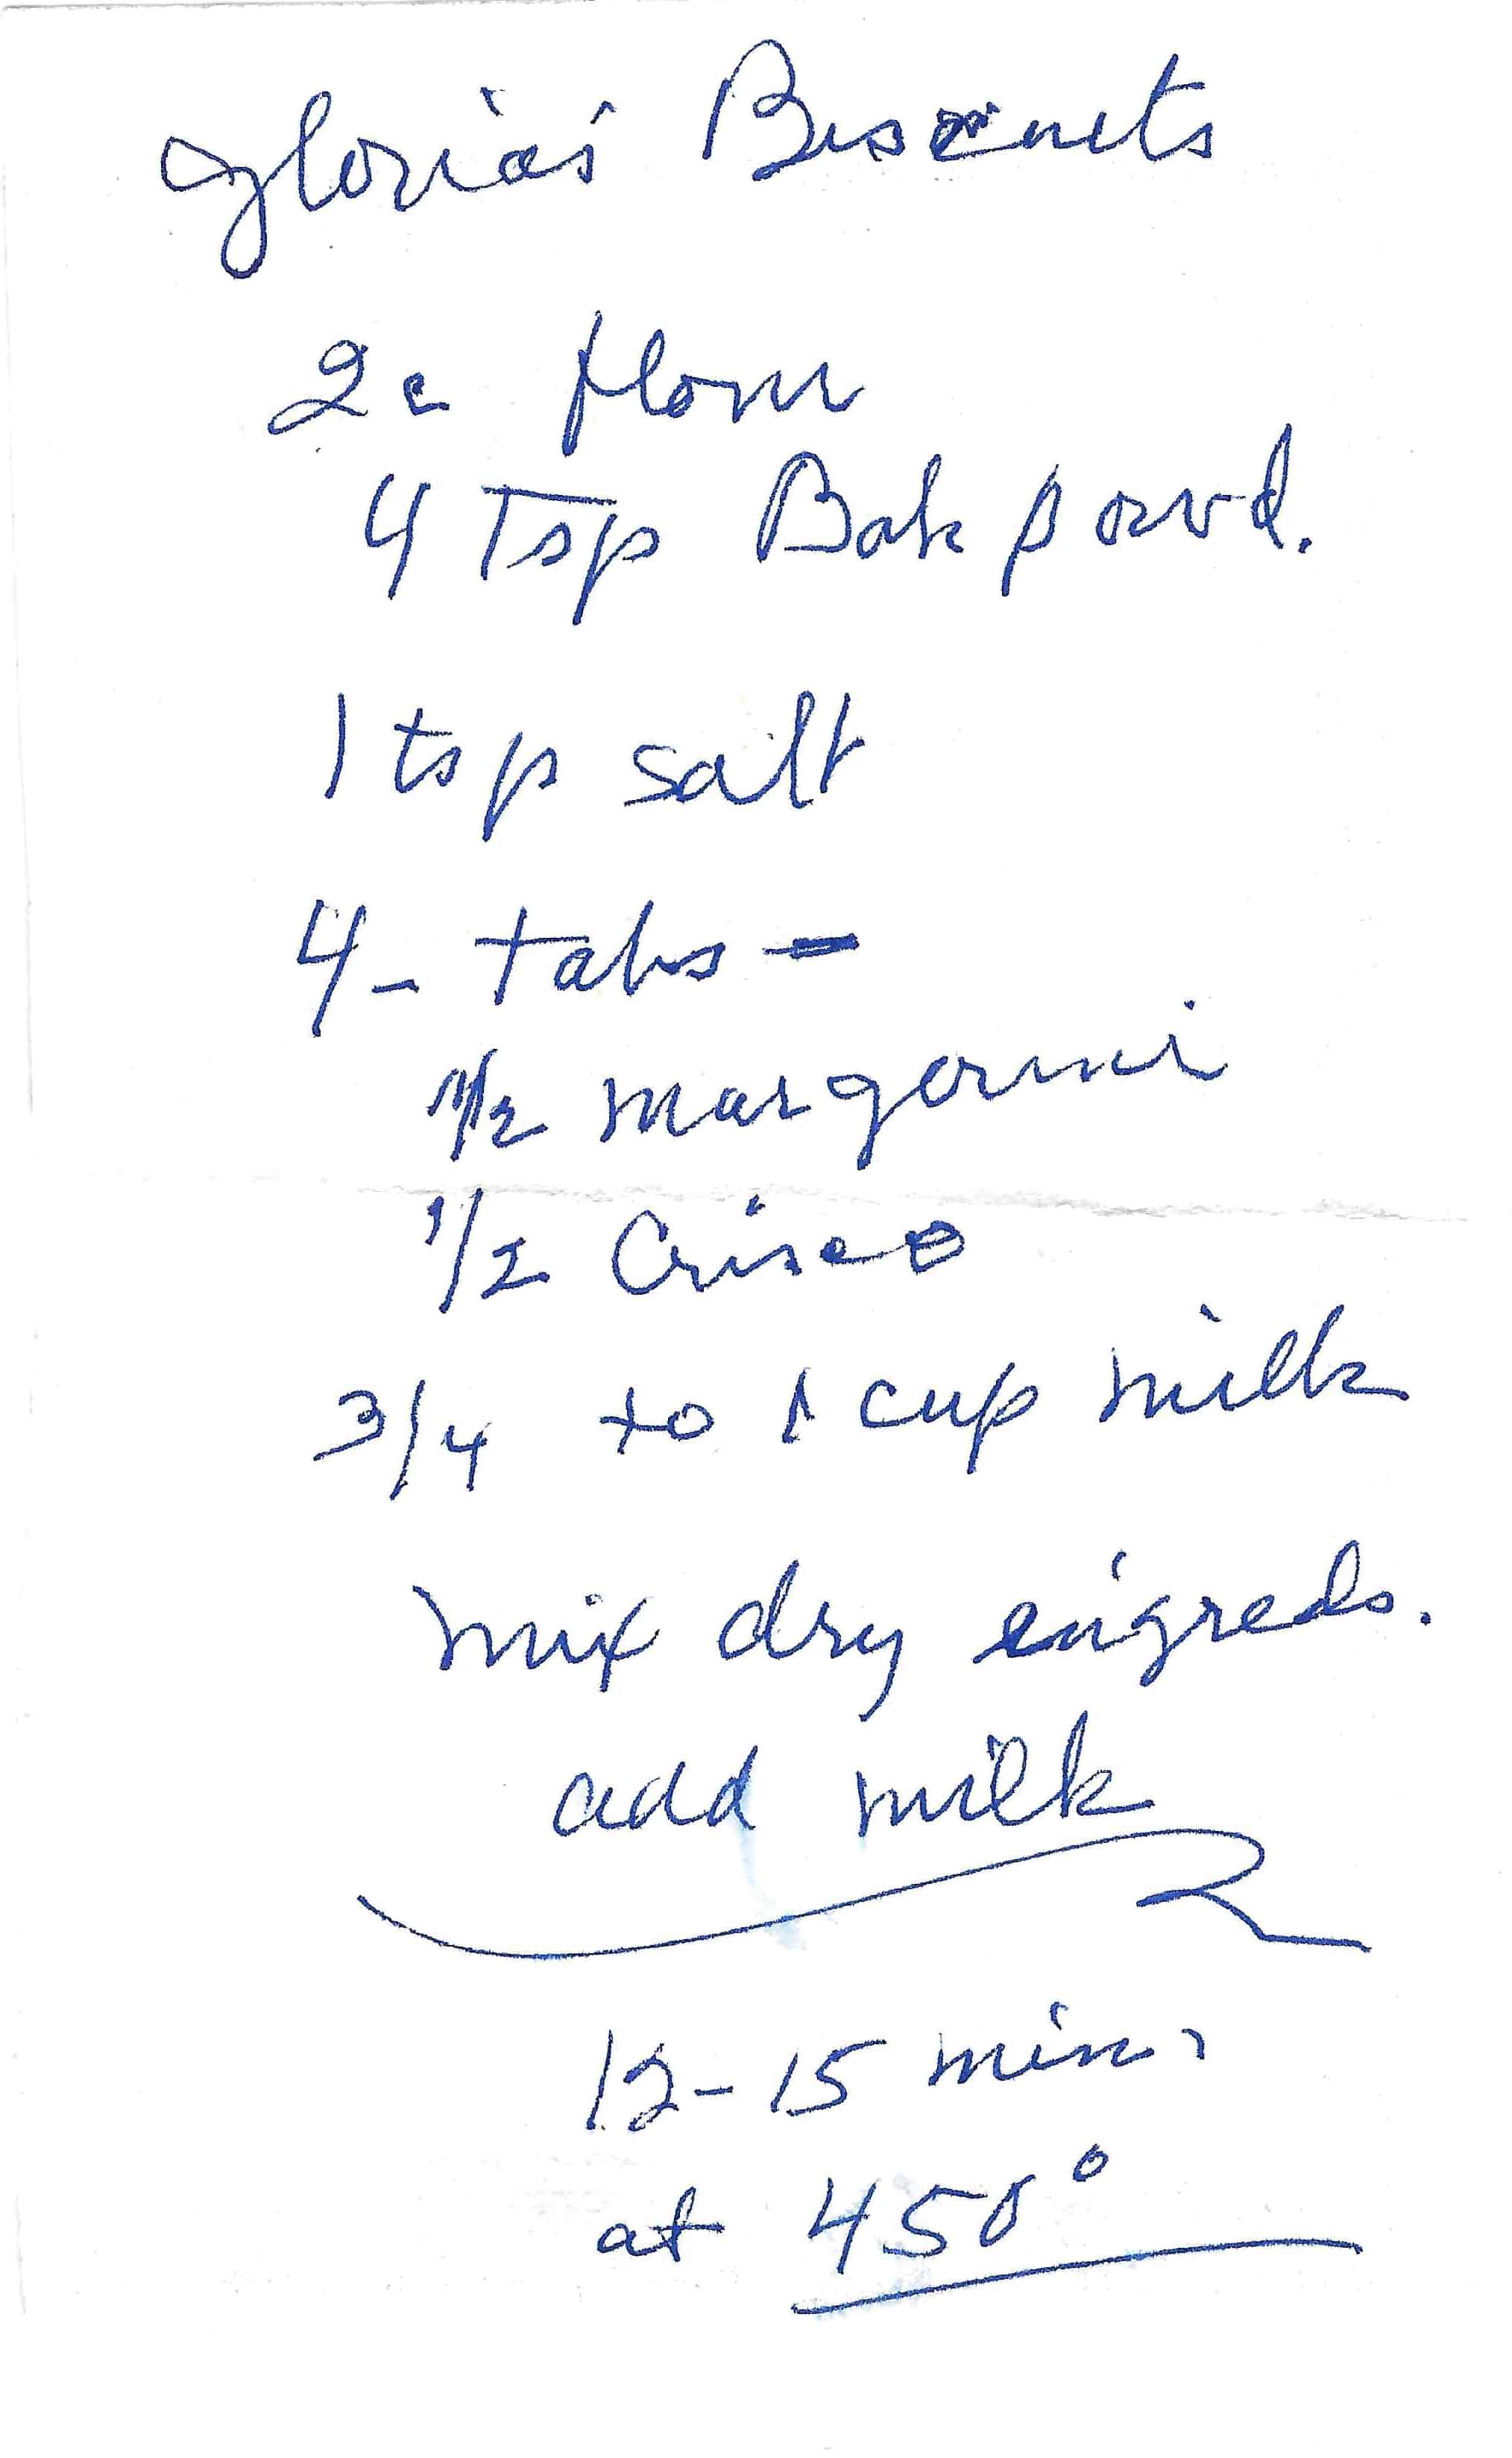 Gloria's Biscuits
2 c flour
4 Tsp Bak powd.
1 tsp salt
4 - tabs -
1/2 margarine
1/2 Crisco
3/4 to 1 cup milk
mix dry ingreds.
add milk
12-15 min.
at 450°